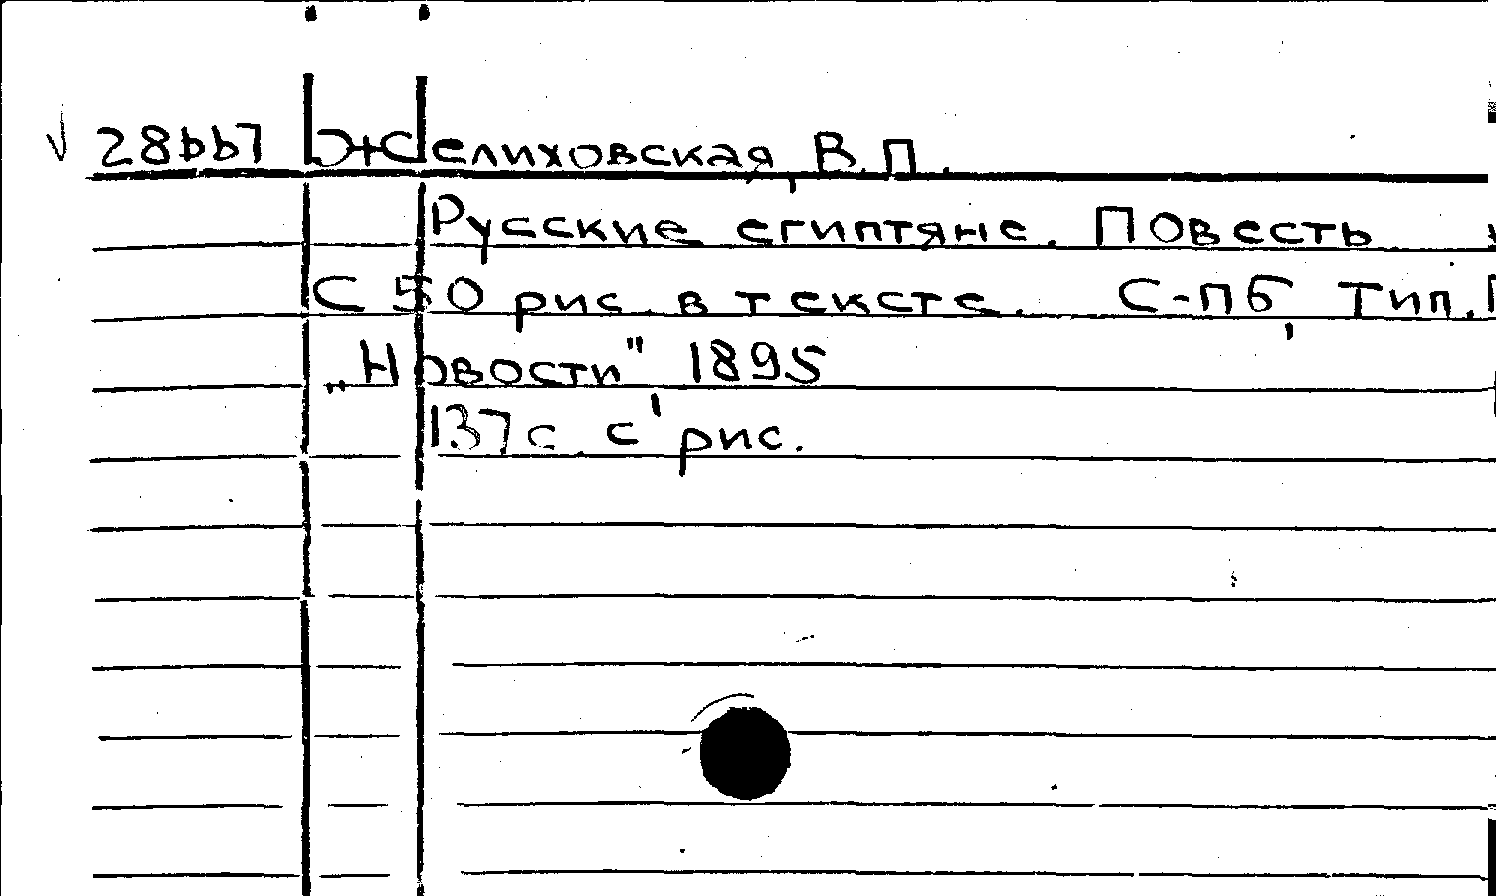 28667 Желиховская, В.П.
Русские египтяне. Повесть
С 50 рис. в тексте. С-пб, Тип.
„Новости" 1895
137с. с рис.